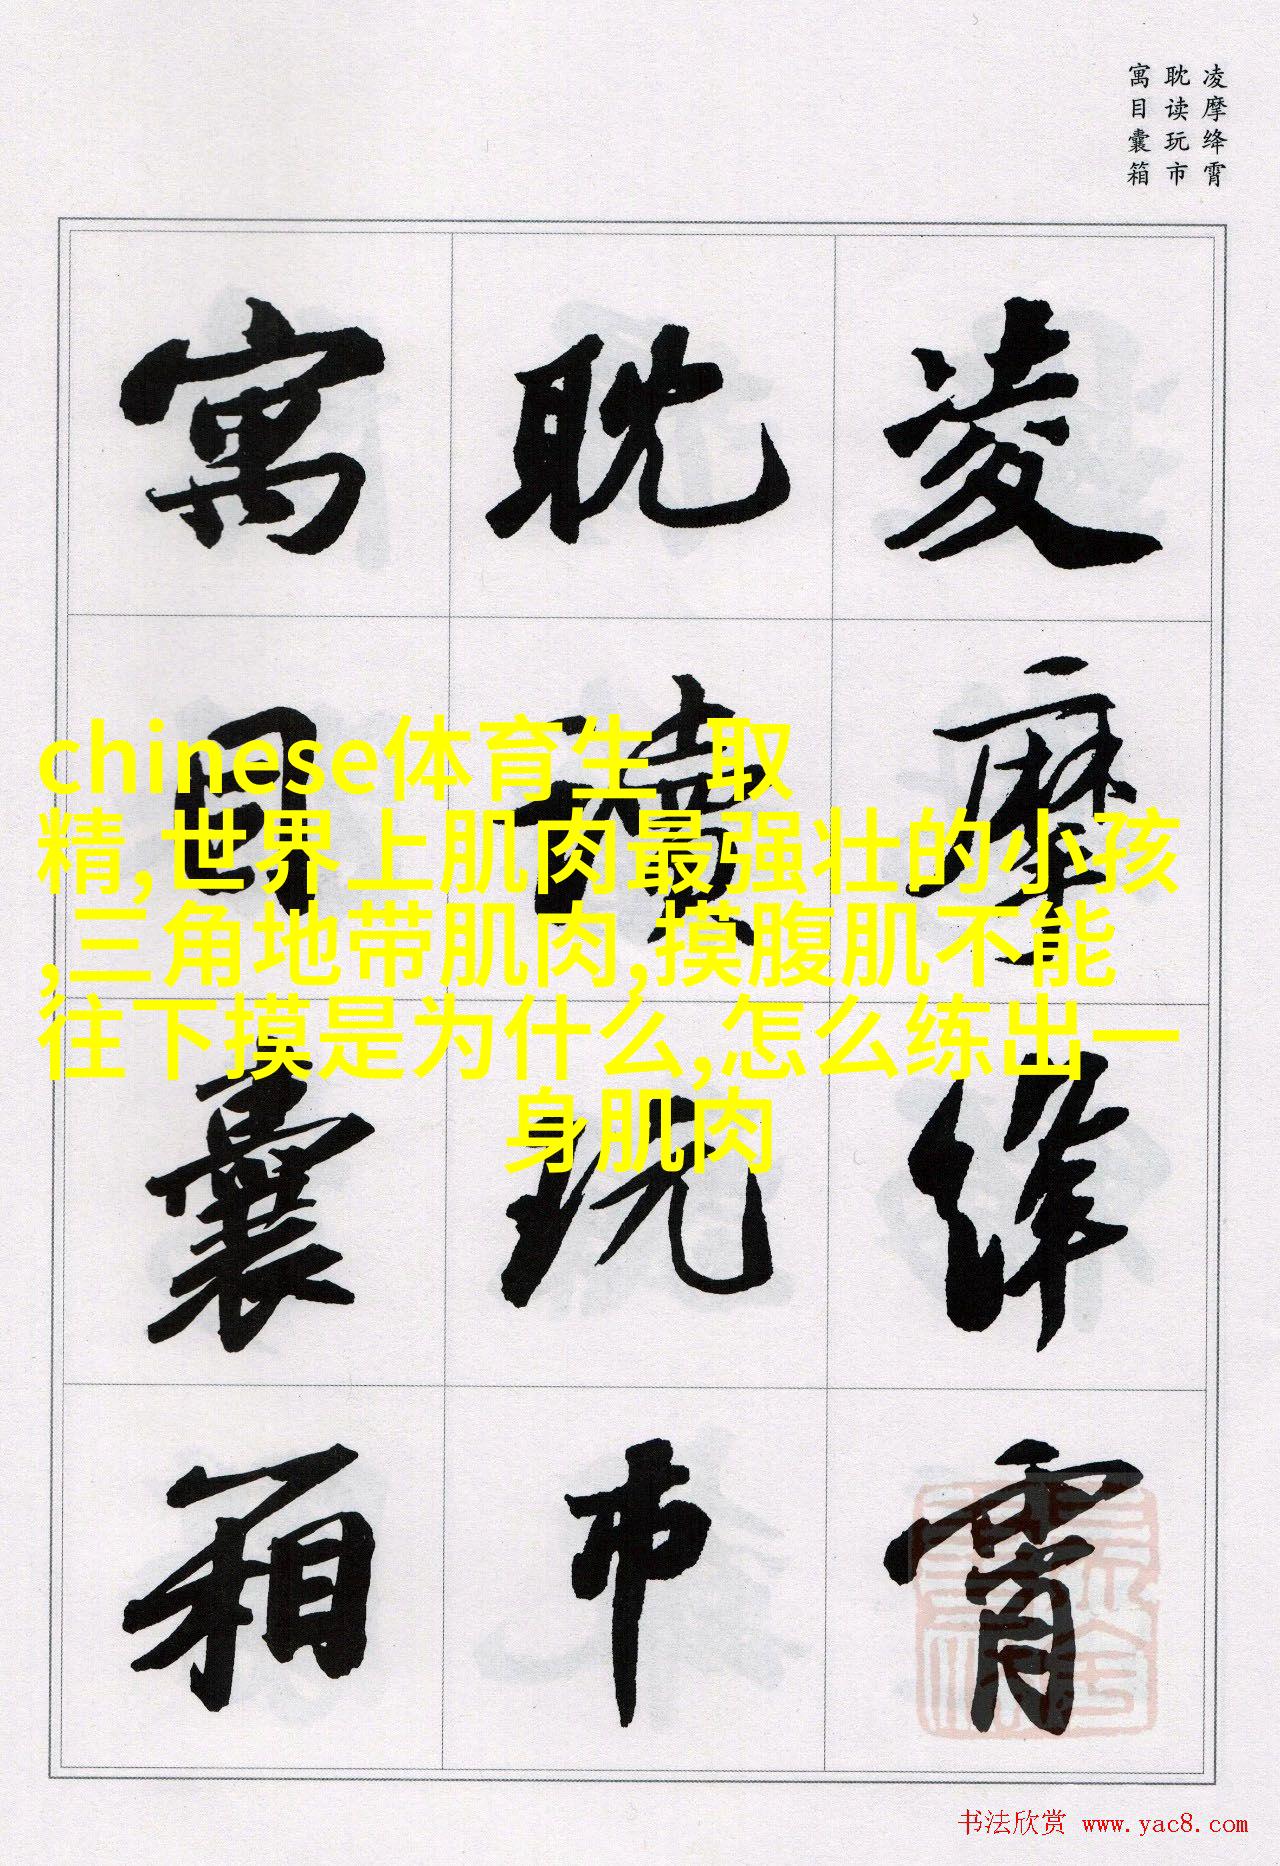 凌摩绛霄
耽读玩市
寓目囊箱
凌摩绛霄
耽读玩市
寓目囊箱
chinese体育生 取
精,世界上肌肉最强壮的小孩
,三角地带肌肉,摸腹肌不能
往下摸是为什么,怎么练出一
身肌肉
书法欣赏 www.yac8.com